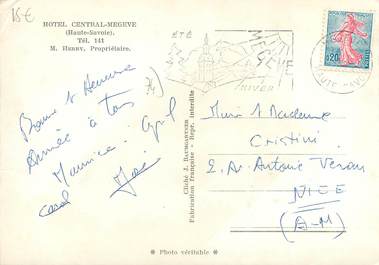 15€
HOTEL CENTRAL-MEGEVE
(Haute-Savoie).
Tél. 141
M. HENRY, Propriétaire.
ÉTÉ
MEGEVE
HIVER
0,20
74)
Bonne & Heureuse
Année à tous
Maurice Cyril
Carol José
Cliché J. BAUMGARTNER
Fabrication française - Repr. interdite
Mr & Madame
Cristini
2, Av. Antoine Véran
NICE
(A-M)
* Photo véritable *